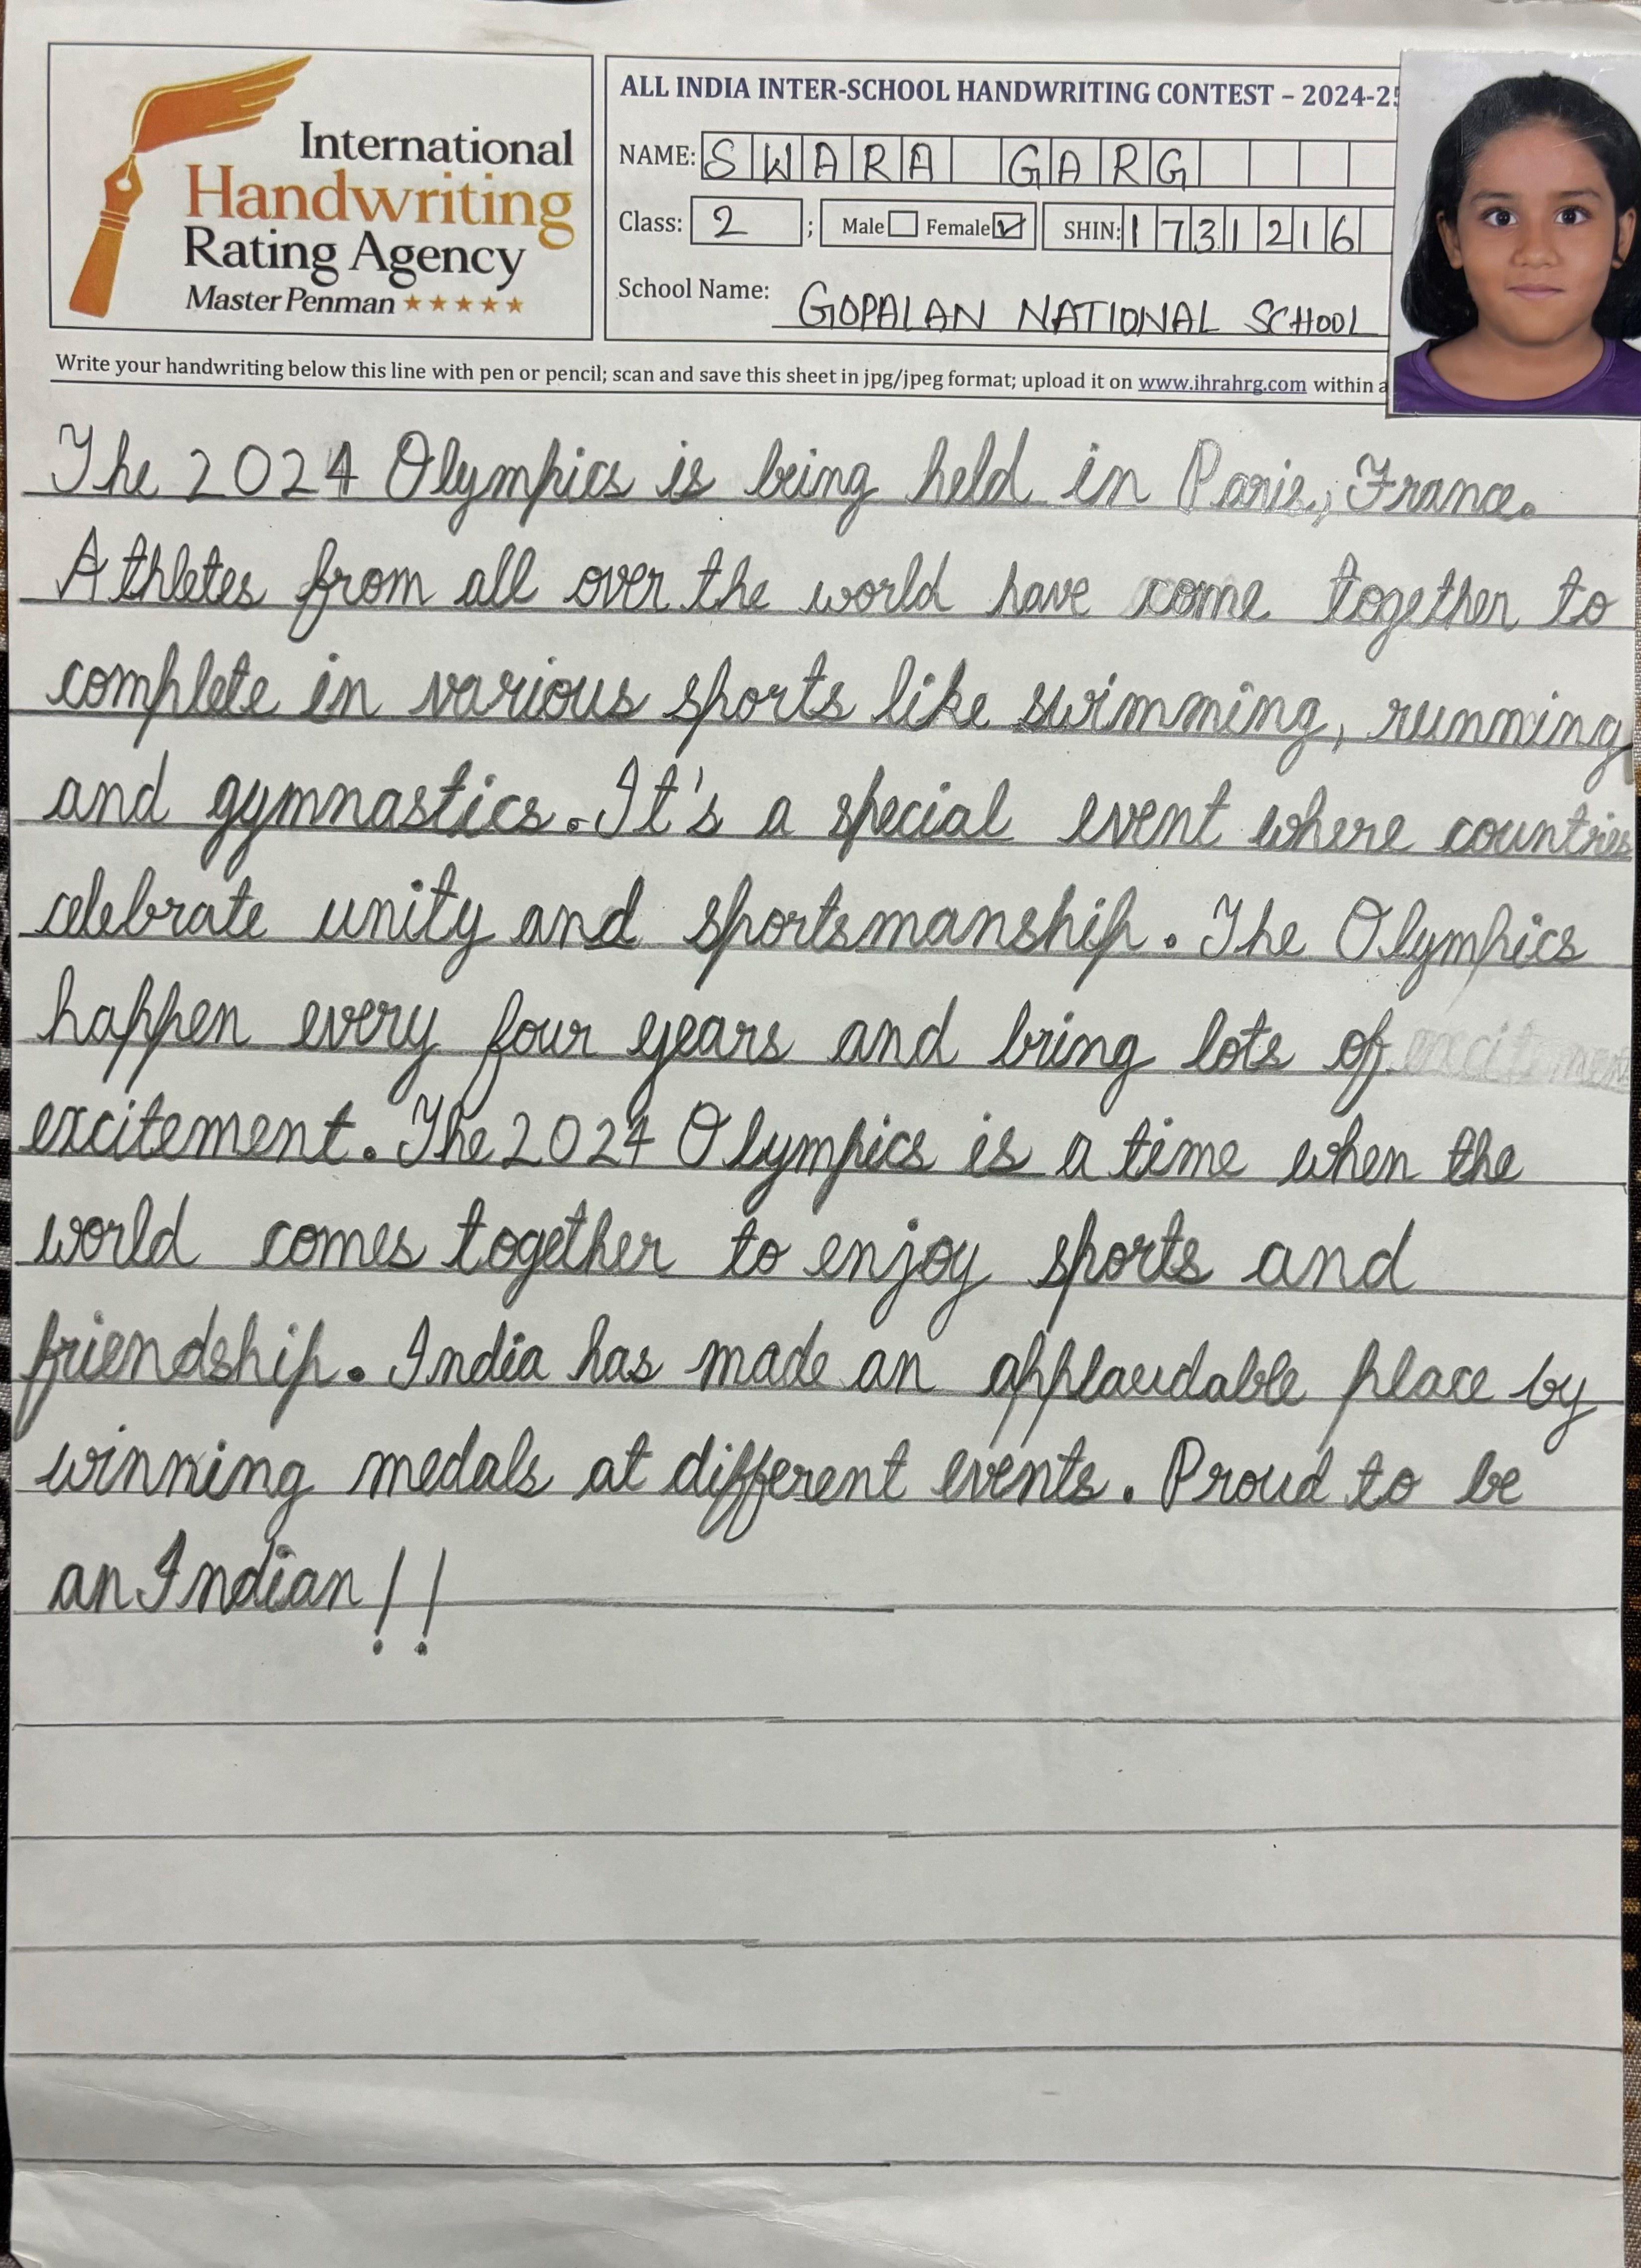 International
Handwriting
Rating Agency
Master Penman ★★★★★
ALL INDIA INTER-SCHOOL HANDWRITING CONTEST – 2024-25
NAME: SWARA GARG
Class: 2 ; Male Female SHIN: 1731216
School Name: GOPALAN NATIONAL SCHOOL
Write your handwriting below this line with pen or pencil; scan and save this sheet in jpg/jpeg format; upload it on www.ihrahrg.com within a
The 2024 Olympics is being held in Paris, France.
Athletes from all over the world have come together to
complete in various sports like swimming, running
and gymnastics. It's a special event where countries
celebrate unity and sportsmanship. The Olympics
happen every four years and bring lots of
excitement. The 2024 Olympics is a time when the
world comes together to enjoy sports and
friendship. India has made an applaudable place by
winning medals at different events. Proud to be
an Indian!!